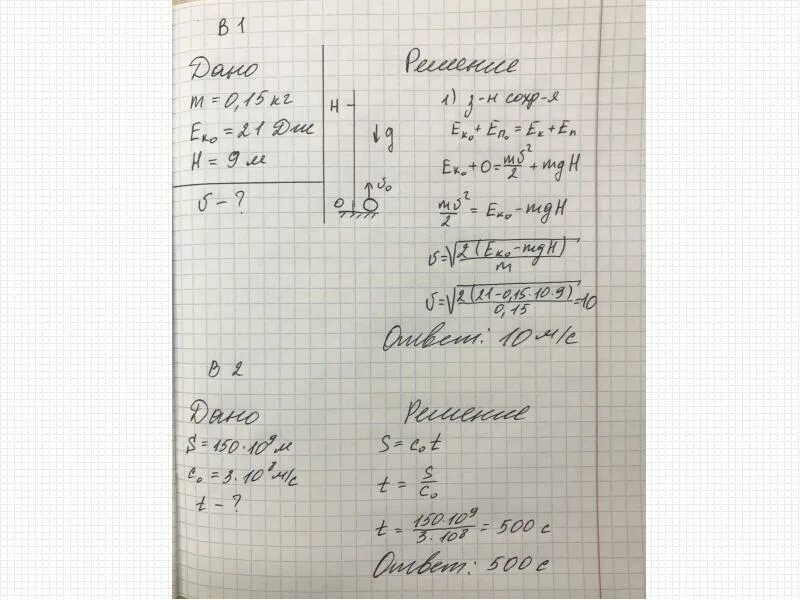 В 1
Дано
m = 0,15 кг
Eк₀ = 21 Дж
H = 9 м
υ - ?
H
↓ g
υ₀
0
Решение
1) з-н сохр-я
Eк₀ + Eп₀ = Eк + Eп
Eк₀ + 0 = mυ²/2 + mgH
mυ²/2 = Eк₀ - mgH
υ = √(2(Eк₀ - mgH)/m)
υ = √(2(21 - 0,15·10·9)/0,15) = 10
Ответ: 10 м/с
В 2
Дано
S = 150·10⁹ м
c₀ = 3·10⁸ м/с
t - ?
Решение
S = c₀t
t = S/c₀
t = 150·10⁹/3·10⁸ = 500 с
Ответ: 500 с